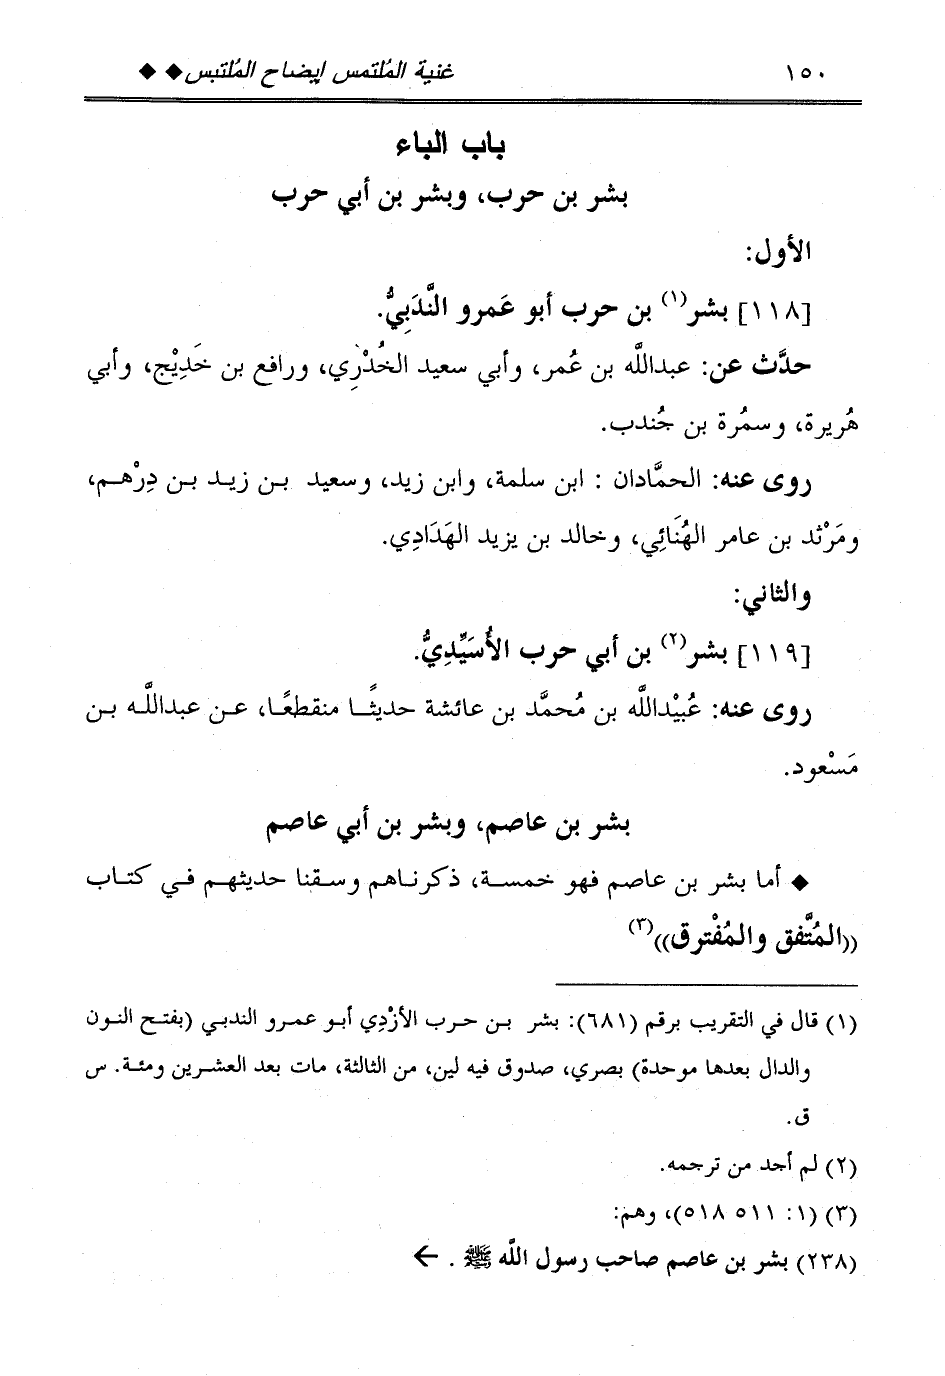 ١٥٠ غنية الملتمس إيضاح الملتبس ◆ ◆
باب الباء
بشر بن حرب، وبشر بن أبي حرب
الأول:
[١١٨] بشر(١) بن حرب أبو عَمرو النَّدَبِيُّ.
حدَّث عن: عبدالله بن عُمر، وأبي سعيد الخُدْرِي، ورافع بن خَدِيْج، وأبي
هُريرة، وسمُرة بن جُندب.
روى عنه: الحمَّادان : ابن سلمة، وابن زيد، وسعيد بن زيد بن دِرْهم،
ومَرْثد بن عامر الهُنَائِي، وخالد بن يزيد الهَدَادِي.
والثاني:
[١١٩] بشر(٢) بن أبي حرب الأُسَيِّدِيُّ.
روى عنه: عُبَيْدالله بن مُحمَّد بن عائشة حديثًا منقطعًا، عن عبدالله بن
مَسْعود.
بشر بن عاصم، وبشر بن أبي عاصم
◆ أما بشر بن عاصم فهو خمسة، ذكرناهم وسقنا حديثهم في كتاب
((المُتَّفق والمُفْترق))(٣)
(١) قال في التقريب برقم (٦٨١): بشر بن حرب الأزْدِي أبو عمرو الندبي (بفتح النون
والدال بعدها موحدة) بصري، صدوق فيه لين، من الثالثة، مات بعد العشرين ومئة. س
ق.
(٢) لم أجد من ترجمه.
(٣) (١: ٥١١ ٥١٨)، وهم:
(٢٣٨) بشر بن عاصم صاحب رسول الله ﷺ . ←